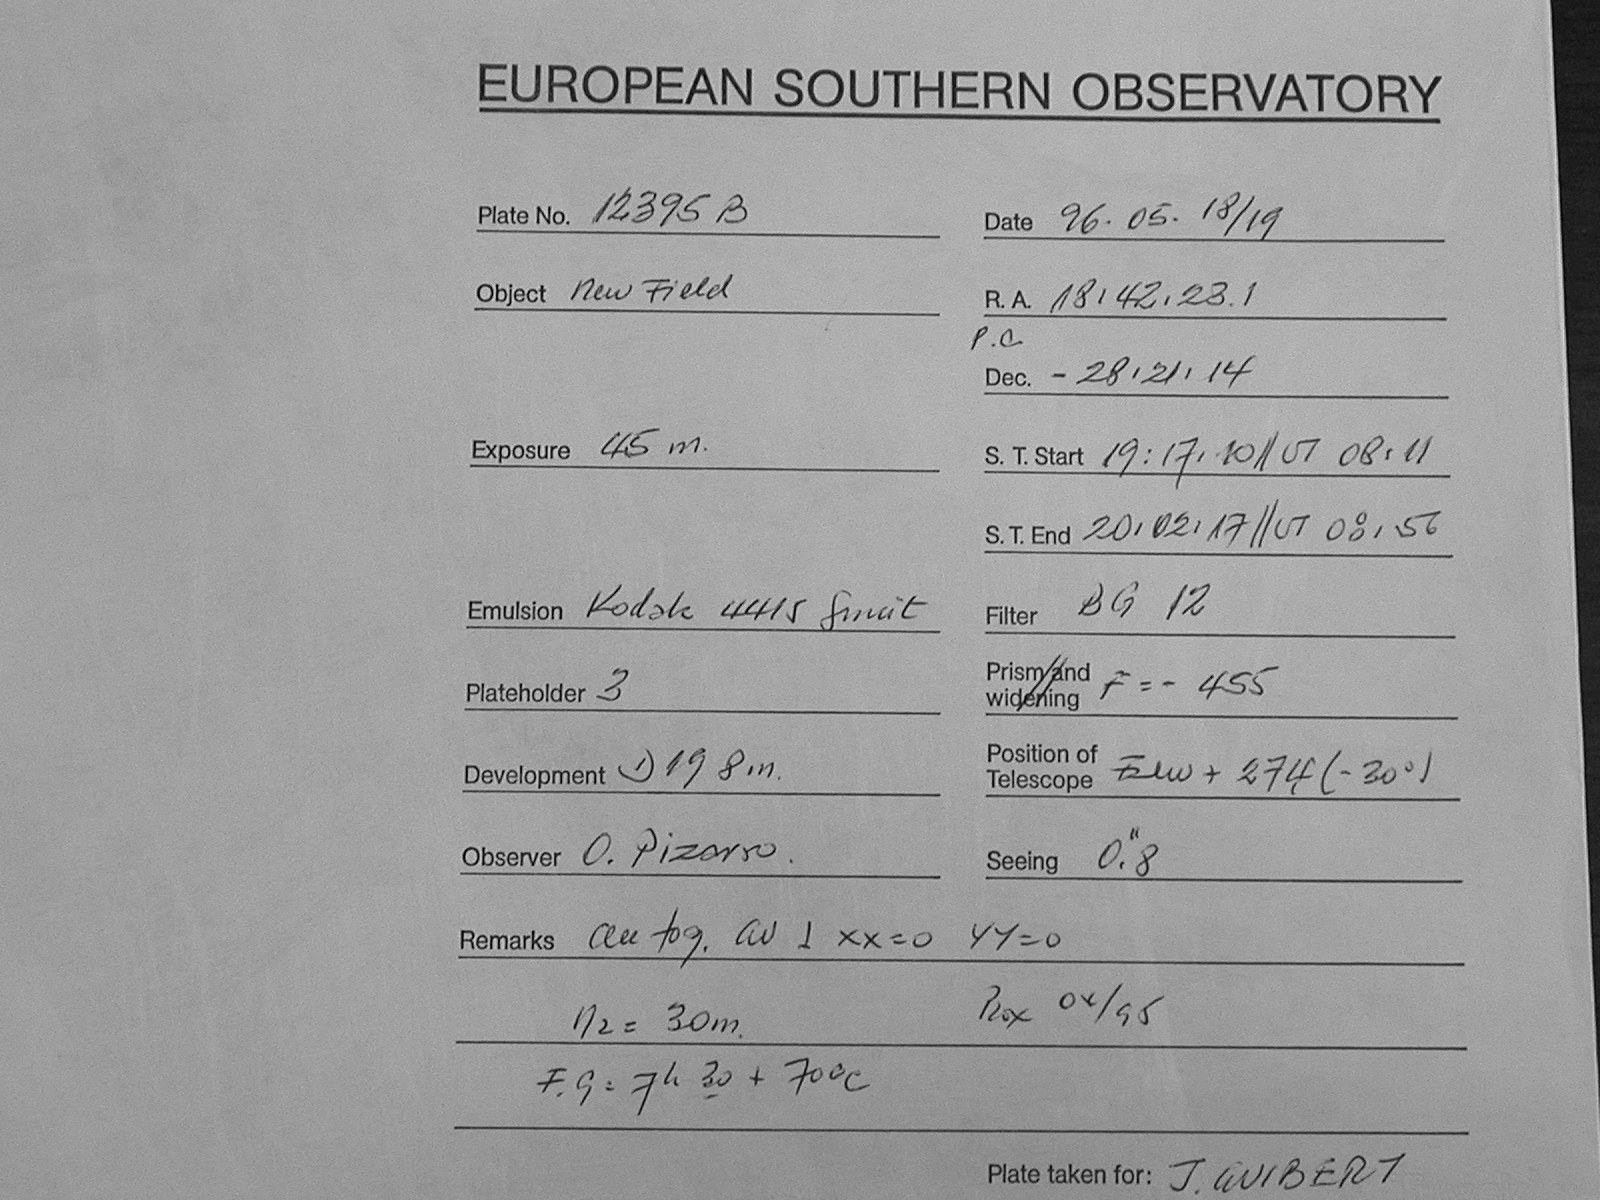 EUROPEAN SOUTHERN OBSERVATORY
Plate No. 12395 B
Date 96. 05. 18/19
Object New Field
R. A. 18:42:23.1
P.C.
Dec. - 28:21:14
Exposure 45 m.
S. T. Start 19:17:10//UT 08:11
S. T. End 20:02:17//UT 08:56
Emulsion Kodak 4415
Filter BG 12
Plateholder 3
Prism/and widening F = - 455
Development D19 8m.
Position of Telescope + 274 (-30°)
Observer O. Pizarro.
Seeing 0."8
Remarks fog. 1 xx=0 YY=0
N2 = 30m.
/95
F.G = 7h 30 + 70°C
Plate taken for: J. GUIBERT